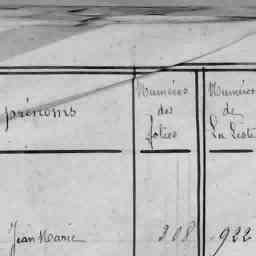 prénoms
Numéros
des
folios
Numéros
de
La Liste
Jean Marie
208
922